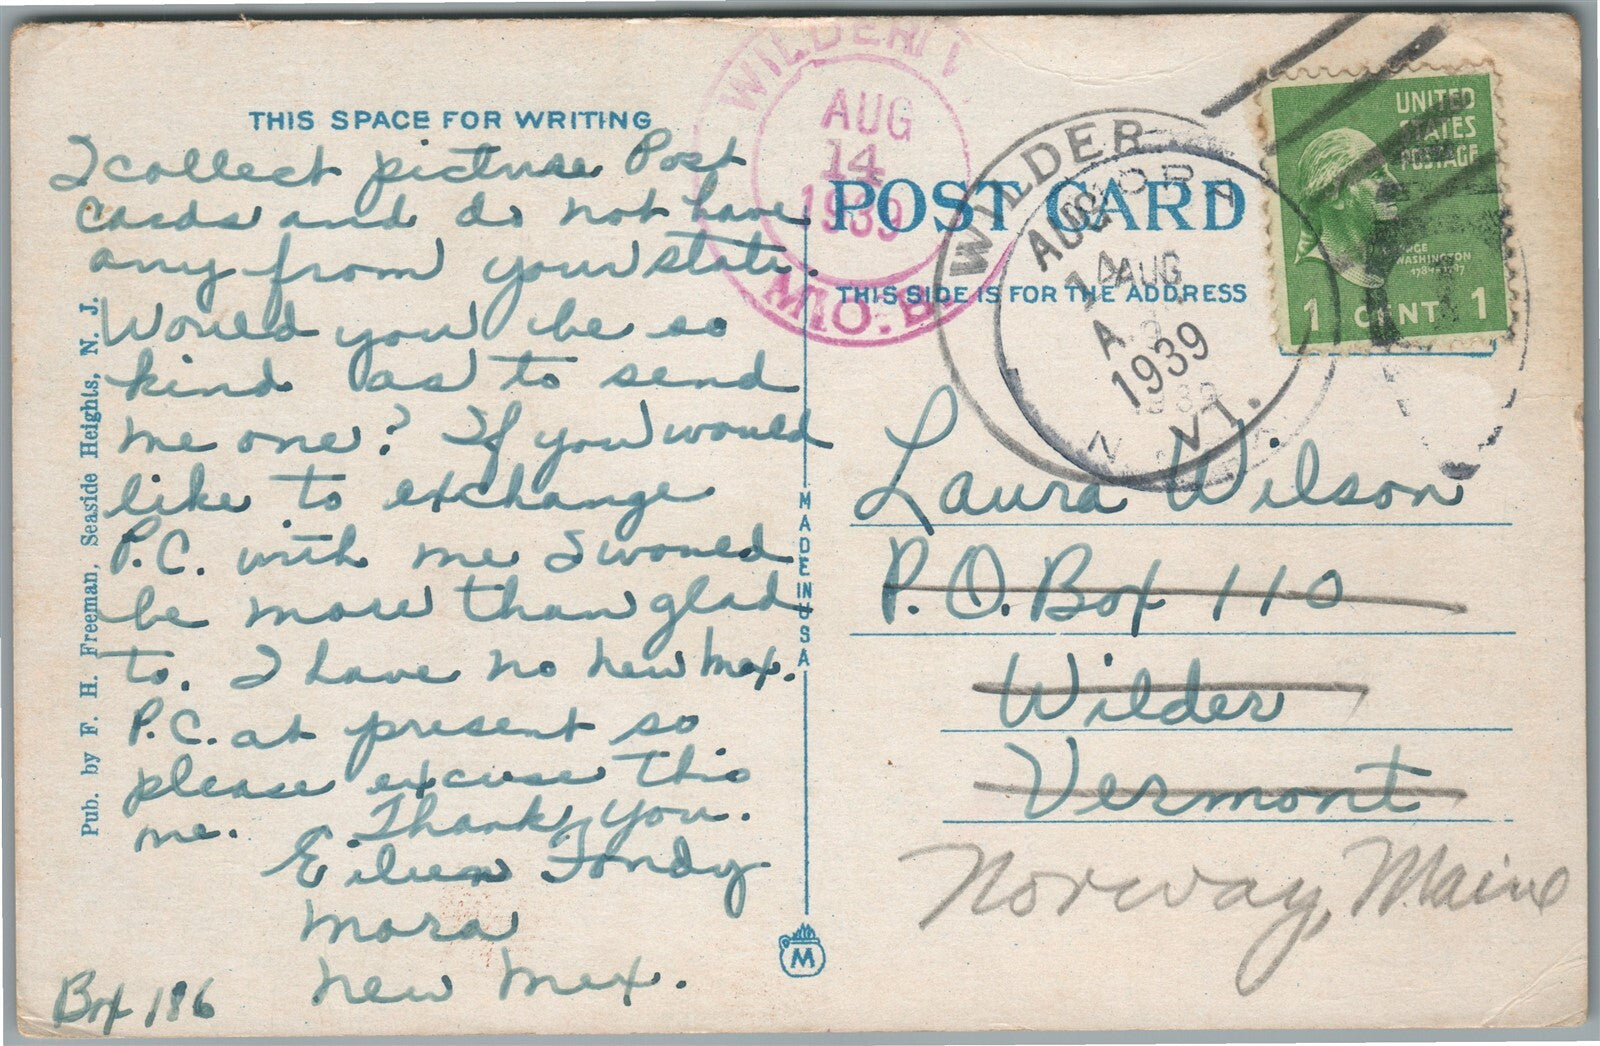 THIS SPACE FOR WRITING
I collect picture Post
cards and do not have
any from your state.
Would you be so
kind as to send
me one? If you would
like to exchange
P.C. with me I would
be more than glad
to. I have no new mex.
P.C. at present so
please excuse this
me.
Thank you.
Eileen Fondy
Mora
New Mex.
Box 186
Pub. by F. H. Freeman, Seaside Heights, N. J.
MADE IN USA
M
POST CARD
THIS SIDE IS FOR THE ADDRESS
WILDER VT
AUG
14
1939
M.O.B.
WILDER
AUG
14
A.
1939
VT.
AUG
UNITED
STATES
POSTAGE
GEORGE
WASHINGTON
1 CENT 1
Laura Wilson
P.O. Box 110
Wilder
Vermont
Norway, Maine